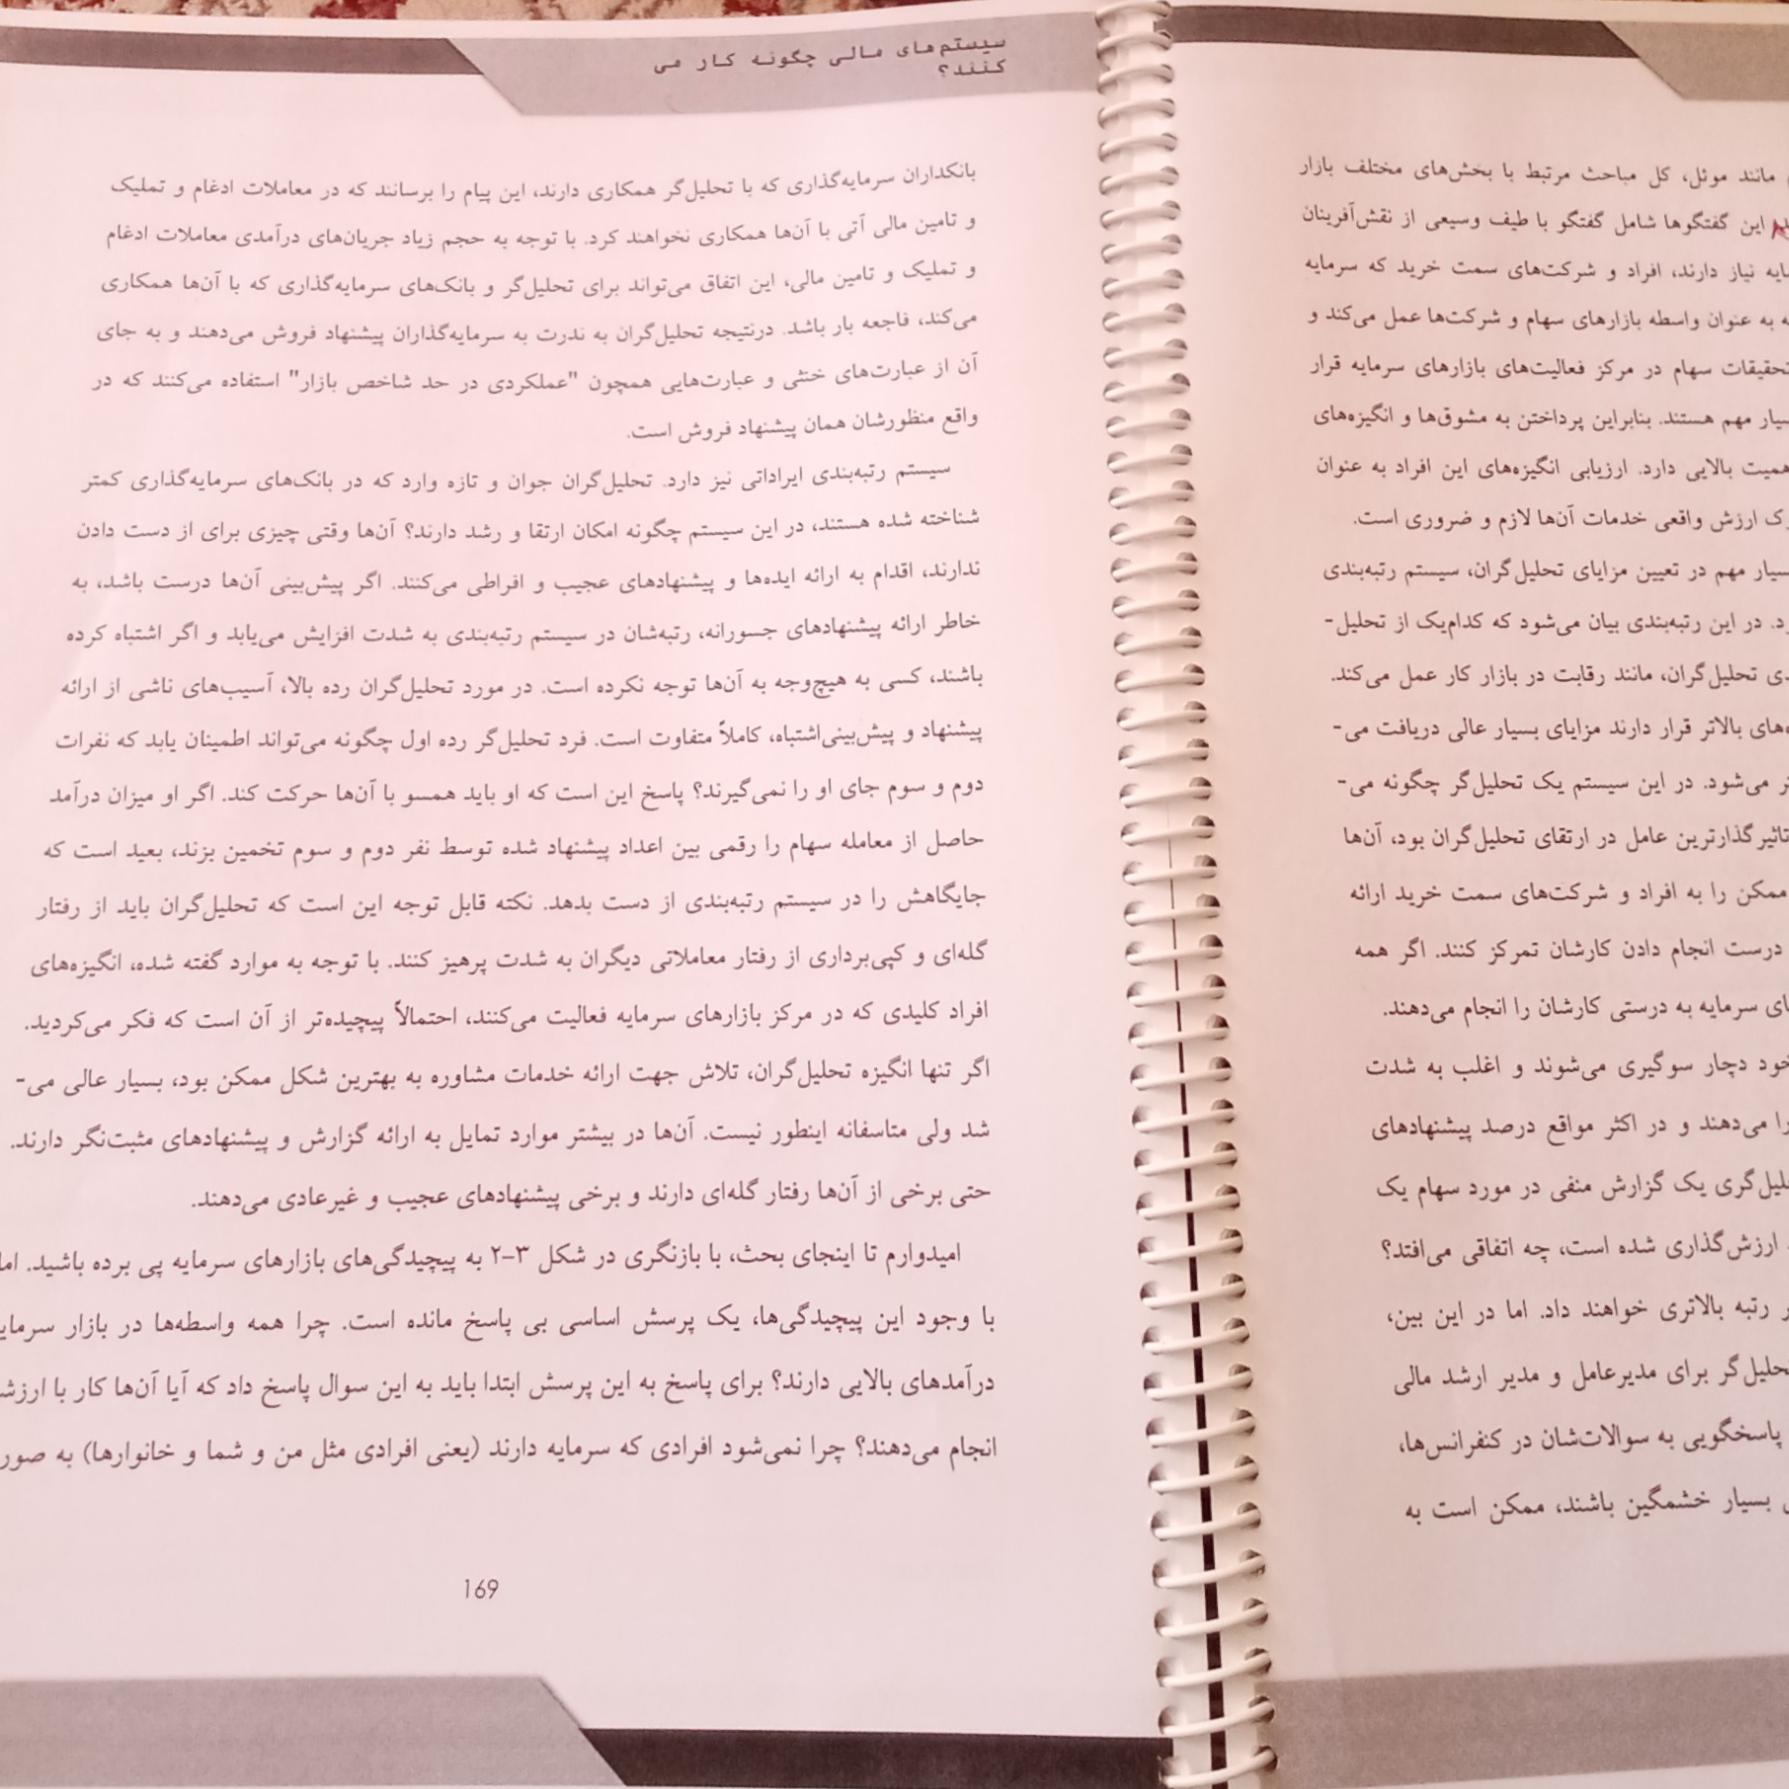 مانند موئل، کل مباحث مرتبط با بخش‌های مختلف بازار
این گفتگوها شامل گفتگو با طیف وسیعی از نقش‌آفرینان
نیاز دارند، افراد و شرکت‌های سمت خرید که سرمایه
به عنوان واسطه بازارهای سهام و شرکت‌ها عمل می‌کند و
تحقیقات سهام در مرکز فعالیت‌های بازارهای سرمایه قرار
مهم هستند. بنابراین پرداختن به مشوق‌ها و انگیزه‌های
بالایی دارد. ارزیابی انگیزه‌های این افراد به عنوان
ارزش واقعی خدمات آن‌ها لازم و ضروری است.
مهم در تعیین مزایای تحلیل‌گران، سیستم رتبه‌بندی
در این رتبه‌بندی بیان می‌شود که کدام‌یک از تحلیل-
تحلیل‌گران، مانند رقابت در بازار کار عمل می‌کند.
بالاتر قرار دارند مزایای بسیار عالی دریافت می-
می‌شود. در این سیستم یک تحلیل‌گر چگونه می-
تاثیرگذارترین عامل در ارتقای تحلیل‌گران بود، آن‌ها
ممکن را به افراد و شرکت‌های سمت خرید ارائه
درست انجام دادن کارشان تمرکز کنند. اگر همه
سرمایه به درستی کارشان را انجام می‌دهند.
خود دچار سوگیری می‌شوند و اغلب به شدت
را می‌دهند و در اکثر مواقع درصد پیشنهادهای
یک گزارش منفی در مورد سهام یک
ارزش‌گذاری شده است، چه اتفاقی می‌افتد؟
رتبه بالاتری خواهند داد. اما در این بین،
برای مدیرعامل و مدیر ارشد مالی
پاسخگویی به سوالات‌شان در کنفرانس‌ها،
بسیار خشمگین باشند، ممکن است به
سیستم‌های مالی چگونه کار می
کنند؟
بانکداران سرمایه‌گذاری که با تحلیل‌گر همکاری دارند، این پیام را برسانند که در معاملات ادغام و تملیک
و تامین مالی آتی با آن‌ها همکاری نخواهند کرد. با توجه به حجم زیاد جریان‌های درآمدی معاملات ادغام
و تملیک و تامین مالی، این اتفاق می‌تواند برای تحلیل‌گر و بانک‌های سرمایه‌گذاری که با آن‌ها همکاری
می‌کند، فاجعه بار باشد. درنتیجه تحلیل‌گران به ندرت به سرمایه‌گذاران پیشنهاد فروش می‌دهند و به جای
آن از عبارت‌های خنثی و عبارت‌هایی همچون "عملکردی در حد شاخص بازار" استفاده می‌کنند که در
واقع منظورشان همان پیشنهاد فروش است.
سیستم رتبه‌بندی ایراداتی نیز دارد. تحلیل‌گران جوان و تازه وارد که در بانک‌های سرمایه‌گذاری کمتر
شناخته شده هستند، در این سیستم چگونه امکان ارتقا و رشد دارند؟ آن‌ها وقتی چیزی برای از دست دادن
ندارند، اقدام به ارائه ایده‌ها و پیشنهادهای عجیب و افراطی می‌کنند. اگر پیش‌بینی آن‌ها درست باشد، به
خاطر ارائه پیشنهادهای جسورانه، رتبه‌شان در سیستم رتبه‌بندی به شدت افزایش می‌یابد و اگر اشتباه کرده
باشند، کسی به هیچ‌وجه به آن‌ها توجه نکرده است. در مورد تحلیل‌گران رده بالا، آسیب‌های ناشی از ارائه
پیشنهاد و پیش‌بینی‌اشتباه، کاملاً متفاوت است. فرد تحلیل‌گر رده اول چگونه می‌تواند اطمینان یابد که نفرات
دوم و سوم جای او را نمی‌گیرند؟ پاسخ این است که او باید همسو با آن‌ها حرکت کند. اگر او میزان درآمد
حاصل از معامله سهام را رقمی بین اعداد پیشنهاد شده توسط نفر دوم و سوم تخمین بزند، بعید است که
جایگاهش را در سیستم رتبه‌بندی از دست بدهد. نکته قابل توجه این است که تحلیل‌گران باید از رفتار
گله‌ای و کپی‌برداری از رفتار معاملاتی دیگران به شدت پرهیز کنند. با توجه به موارد گفته شده، انگیزه‌های
افراد کلیدی که در مرکز بازارهای سرمایه فعالیت می‌کنند، احتمالاً پیچیده‌تر از آن است که فکر می‌کردید.
اگر تنها انگیزه تحلیل‌گران، تلاش جهت ارائه خدمات مشاوره به بهترین شکل ممکن بود، بسیار عالی می-
شد ولی متاسفانه اینطور نیست. آن‌ها در بیشتر موارد تمایل به ارائه گزارش و پیشنهادهای مثبت‌نگر دارند.
حتی برخی از آن‌ها رفتار گله‌ای دارند و برخی پیشنهادهای عجیب و غیرعادی می‌دهند.
امیدوارم تا اینجای بحث، با بازنگری در شکل ۳-۲ به پیچیدگی‌های بازارهای سرمایه پی برده باشید. اما
با وجود این پیچیدگی‌ها، یک پرسش اساسی بی پاسخ مانده است. چرا همه واسطه‌ها در بازار
درآمدهای بالایی دارند؟ برای پاسخ به این پرسش ابتدا باید به این سوال پاسخ داد که آیا آن‌ها کار با
انجام می‌دهند؟ چرا نمی‌شود افرادی که سرمایه دارند (یعنی افرادی مثل من و شما و خانوارها) به
169